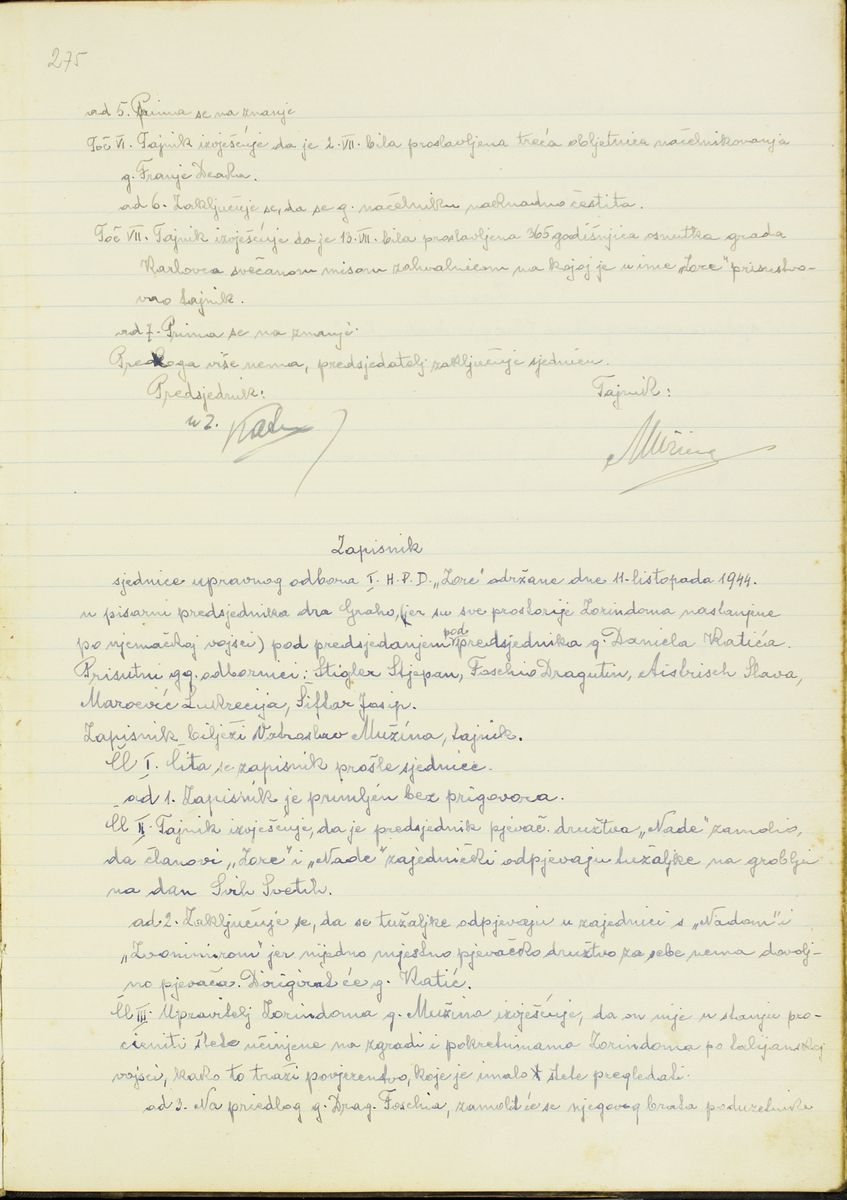 275
ad 5. Prima se na znanje
Toč VI. Tajnik izvješćuje da je 2. VII. bila proslavljena treća obljetnica načelnikovanja
g. Franje Deaka.
ad 6. Zaključuje se, da se g. načelniku naknadno čestita.
Toč VII. Tajnik izvješćuje da je 13. VII. bila proslavljena 365 godišnjica osnutka grada
Karlovca svečanom misom zahvalnicom na kojoj je u ime „Zore" prisustvo-
vao tajnik.
ad 7. Prima se na znanje.
Predloga više nema, predsjedatelj zaključuje sjednicu.
Predsjednik: Tajnik:
u z. Katić Mužina
Zapisnik
sjednice upravnog odbora I. H. P. D. „Zore" održane dne 11. listopada 1944.
u pisarni predsjednika dra Graho, (jer su sve prostorije Zorindoma nastanjene
po njemačkoj vojsci) pod predsjedanjem podpredsjednika g. Daniela Katića.
Prisutni gg. odbornici: Stigler Stjepan, Foschio Dragutin, Aisbrich Slava,
Maroević Lukrecija, Šiftar Josip.
Zapisnik bilježi Vatroslav Mužina, tajnik.
Čl I. Čita se zapisnik prošle sjednice.
ad 1. Zapisnik je primljen bez prigovora.
Čl II. Tajnik izvješćuje, da je predsjednik pjevač. družtva „Nade" zamolio,
da članovi „Zore" i „Nade" zajednički odpjevaju tužaljke na groblju
na dan Svih Svetih.
ad. 2. Zaključuje se, da se tužaljke odpjevaju u zajednici s „Nadom" i
„Zvonimirom" jer nijedno mjestno pjevačko družtvo za sebe nema dovolj-
no pjevača. Dirigirat će g. Katić.
Čl III. Upravitelj Zorindoma g. Mužina izvješćuje, da on nije u stanju pro-
cieniti štete učinjene na zgradi i pokretninama Zorindoma po talijanskoj
vojsci, kako to traži povjerenstvo, koje je imalo štete pregledati.
ad 3. Na priedlog g. Drag. Foschia, zamolit će se njegovog brata poduzetnika